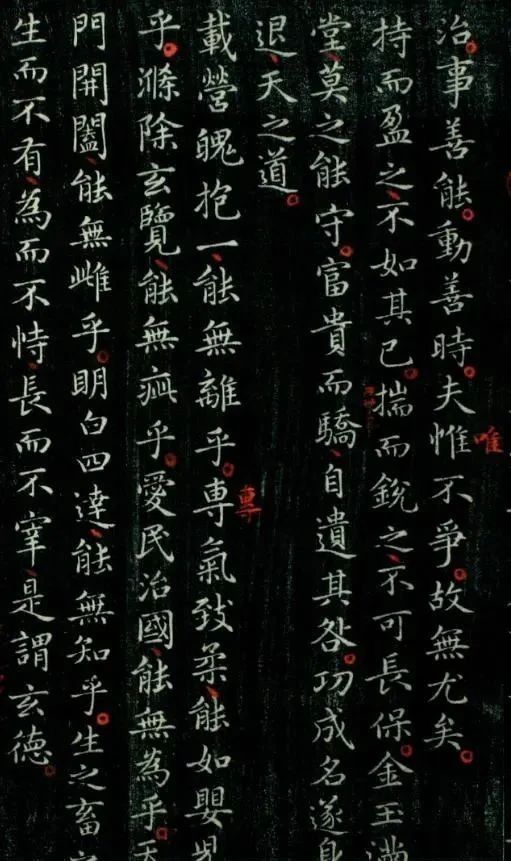 治。事善能。動善時。夫惟不爭。故無尤矣。
唯
持而盈之、不如其已。揣而銳之、不可長保。金玉滿
堂、莫之能守。富貴而驕、自遺其咎。功成名遂身
退、天之道。
載營魄抱一、能無離乎。専氣致柔、能如嬰兒
專
乎。滌除玄覽、能無疵乎。愛民治國、能無為乎。天
門開闔、能無雌乎。明白四達、能無知乎。生之畜之
生而不有、為而不恃、長而不宰、是謂玄德。